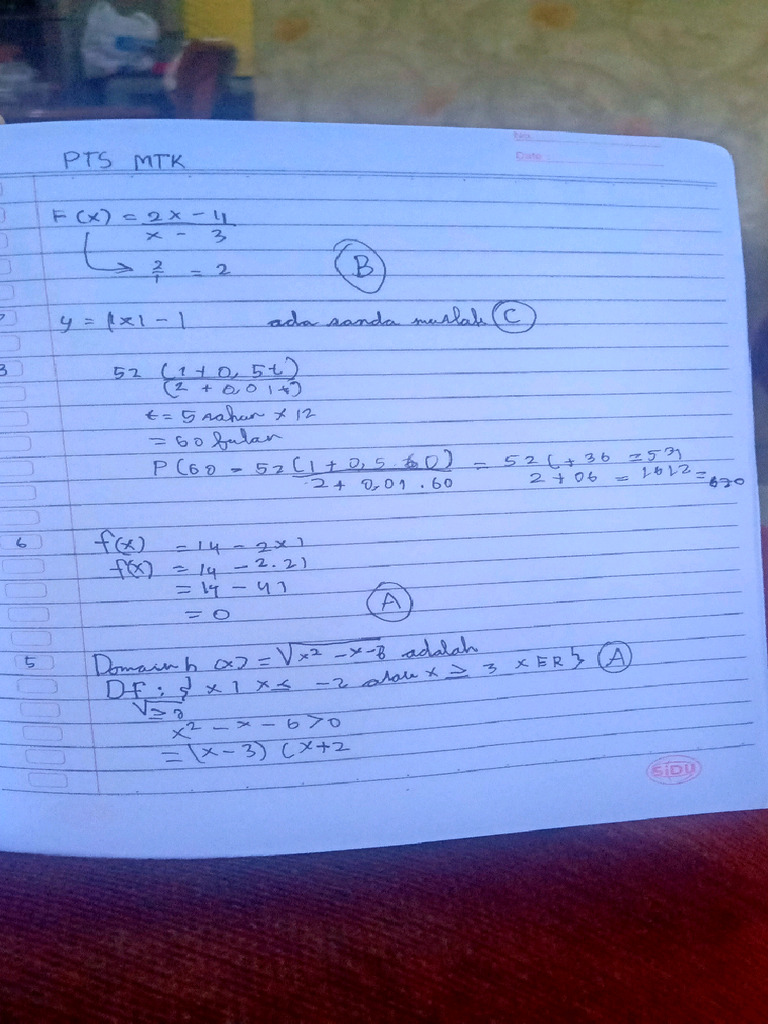 No.
Date
PTS MTK
F(x) = 2x - 4
x - 3
2/1 = 2 B
y = |x| - 1 ada tanda mutlak C
3 52 (1 + 0,5t)
(2 + 0,01t)
t = 5 tahun x 12
= 60 bulan
P(60 = 52(1 + 0,5.60) = 52(+ 30
2 + 0,01.60 2 + 06
6 f(x) = 14 - 2x1
f(x) = 14 - 2.21
= 14 - 41
= 0 A
5 Domain h (x) = √x² - x - 8 adalah
DF : } x 1 x ≤ -2 atau x ≥ 3 x ER } A
x² - x - 6 > 0
= (x - 3) (x + 2
SiDU